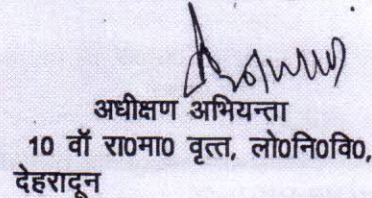 अधीक्षण अभियन्ता
10 वॉ रा0मा0 वृत्त, लो0नि0वि0,
देहरादून